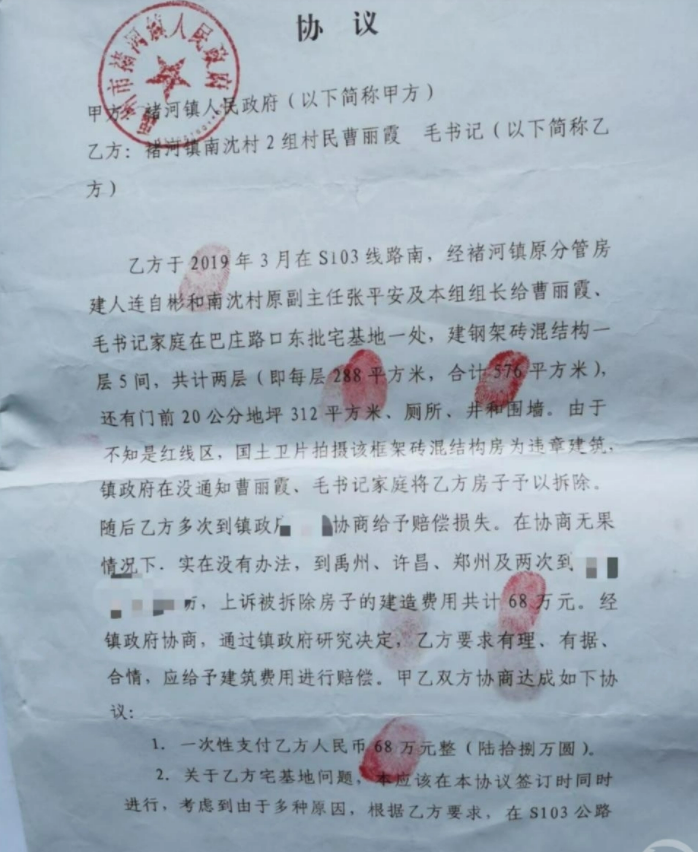 协 议
市褚河镇人民政府
甲方：褚河镇人民政府（以下简称甲方）
乙方：褚河镇南沈村 2 组村民曹丽霞 毛书记（以下简称乙
方）
乙方于 2019 年 3 月在 S103 线路南，经褚河镇原分管房
建人连自彬和南沈村原副主任张平安及本组组长给曹丽霞、
毛书记家庭在巴庄路口东批宅基地一处，建钢架砖混结构一
层 5 间，共计两层（即每层 288 平方米，合计 576 平方米），
还有门前 20 公分地坪 312 平方米、厕所、井和围墙。由于
不知是红线区，国土卫片拍摄该框架砖混结构房为违章建筑，
镇政府在没通知曹丽霞、毛书记家庭将乙方房子予以拆除。
随后乙方多次到镇政 协商给予赔偿损失。在协商无果
情况下．实在没有办法，到禹州、许昌、郑州及两次到
，上诉被拆除房子的建造费用共计 68 万元。经
镇政府协商，通过镇政府研究决定，乙方要求有理、有据、
合情，应给予建筑费用进行赔偿。甲乙双方协商达成如下协
议：
1．一次性支付乙方人民币 68 万元整（陆拾捌万圆）。
2．关于乙方宅基地问题，本应该在本协议签订时同时
进行，考虑到由于多种原因，根据乙方要求，在 S103 公路